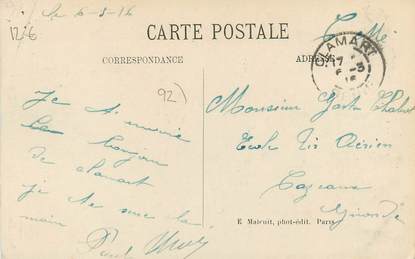 Le 6-3-16
12.6
CARTE POSTALE
CORRESPONDANCE
ADRESSE
CLAMART
92)
Je t'envoie
le bonjour
de clamart
je te serre la
main Paul
Monsieur
Ecole Tir Aérien
Cazeaux
Gironde
E Maleuit, phot-édit. Paris